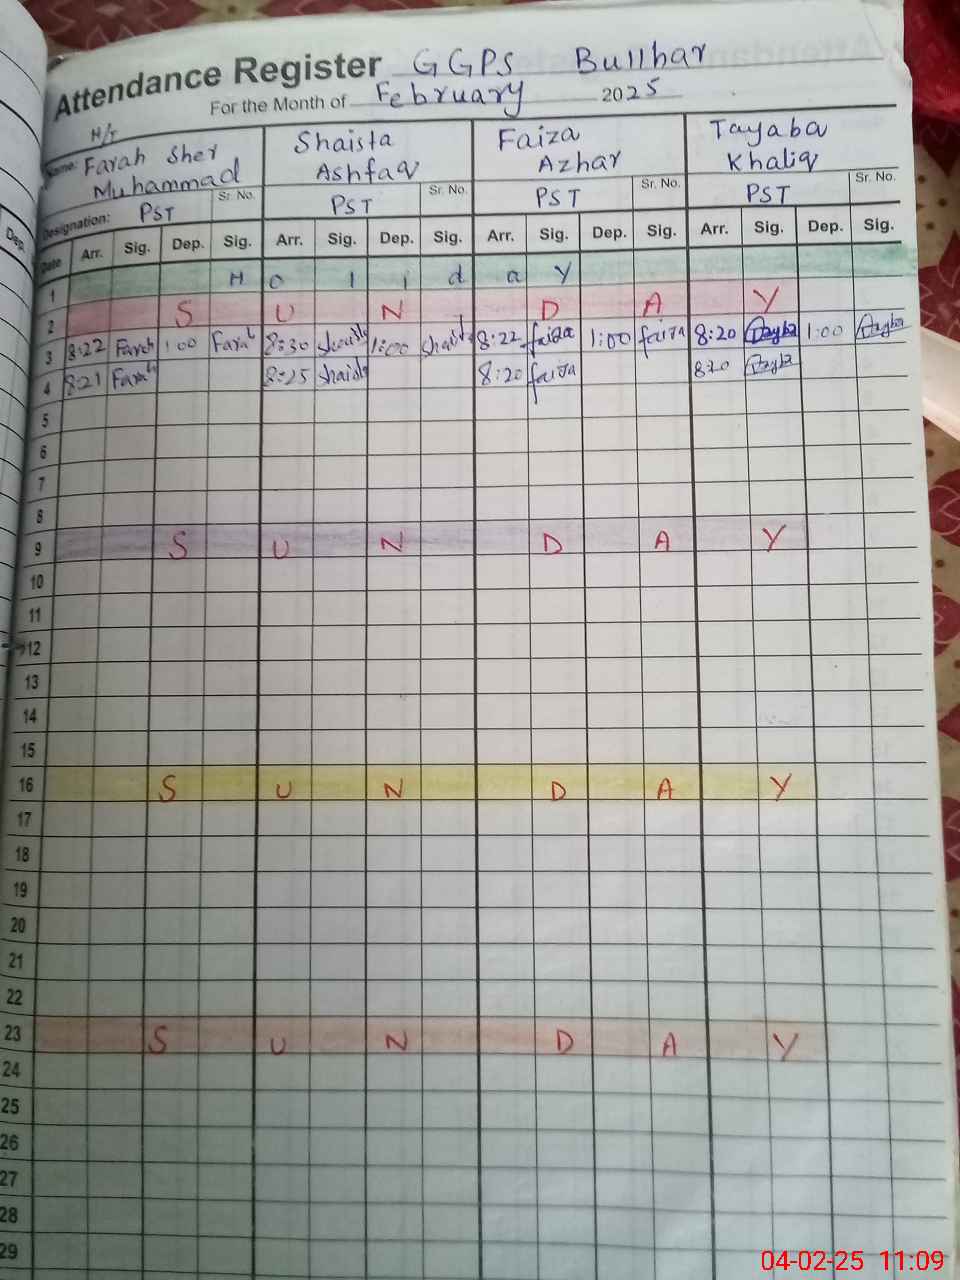 Attendance Register GGPS Bullhar
For the Month of February 2025
H/T
Name: Farah Sher Muhammad Shaista Ashfaq Faiza Azhar Tayaba Khaliq
Sr. No. Sr. No. Sr. No. Sr. No.
Designation: PST PST PST PST
Date Arr. Sig. Dep. Sig. Arr. Sig. Dep. Sig. Arr. Sig. Dep. Sig. Arr. Sig. Dep. Sig.
1 H o l i d a y
2 S U N D A Y
3 8:22 Farah 1:00 Farah 8:30 Shaista 1:00 Shaista 8:22 faiza 1:00 faiza 8:20 Tayba 1:00 Tayba
4 8:21 Farah 8:25 Shaista 8:20 faiza 8:20 Tayba
5
6
7
8
9 S U N D A Y
10
11
12
13
14
15
16 S U N D A Y
17
18
19
20
21
22
23 S U N D A Y
24
25
26
27
28
29
Dep.
04-02-25 11:09